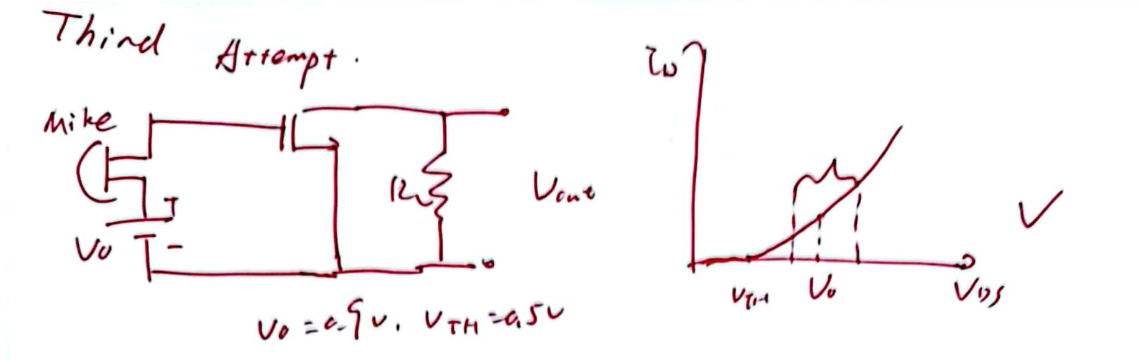 Third Attempt.
Mike
V0
+
-
R
Vout
V0 = 0.9V, VTH = 0.5V
iD
VTH
V0
VDS